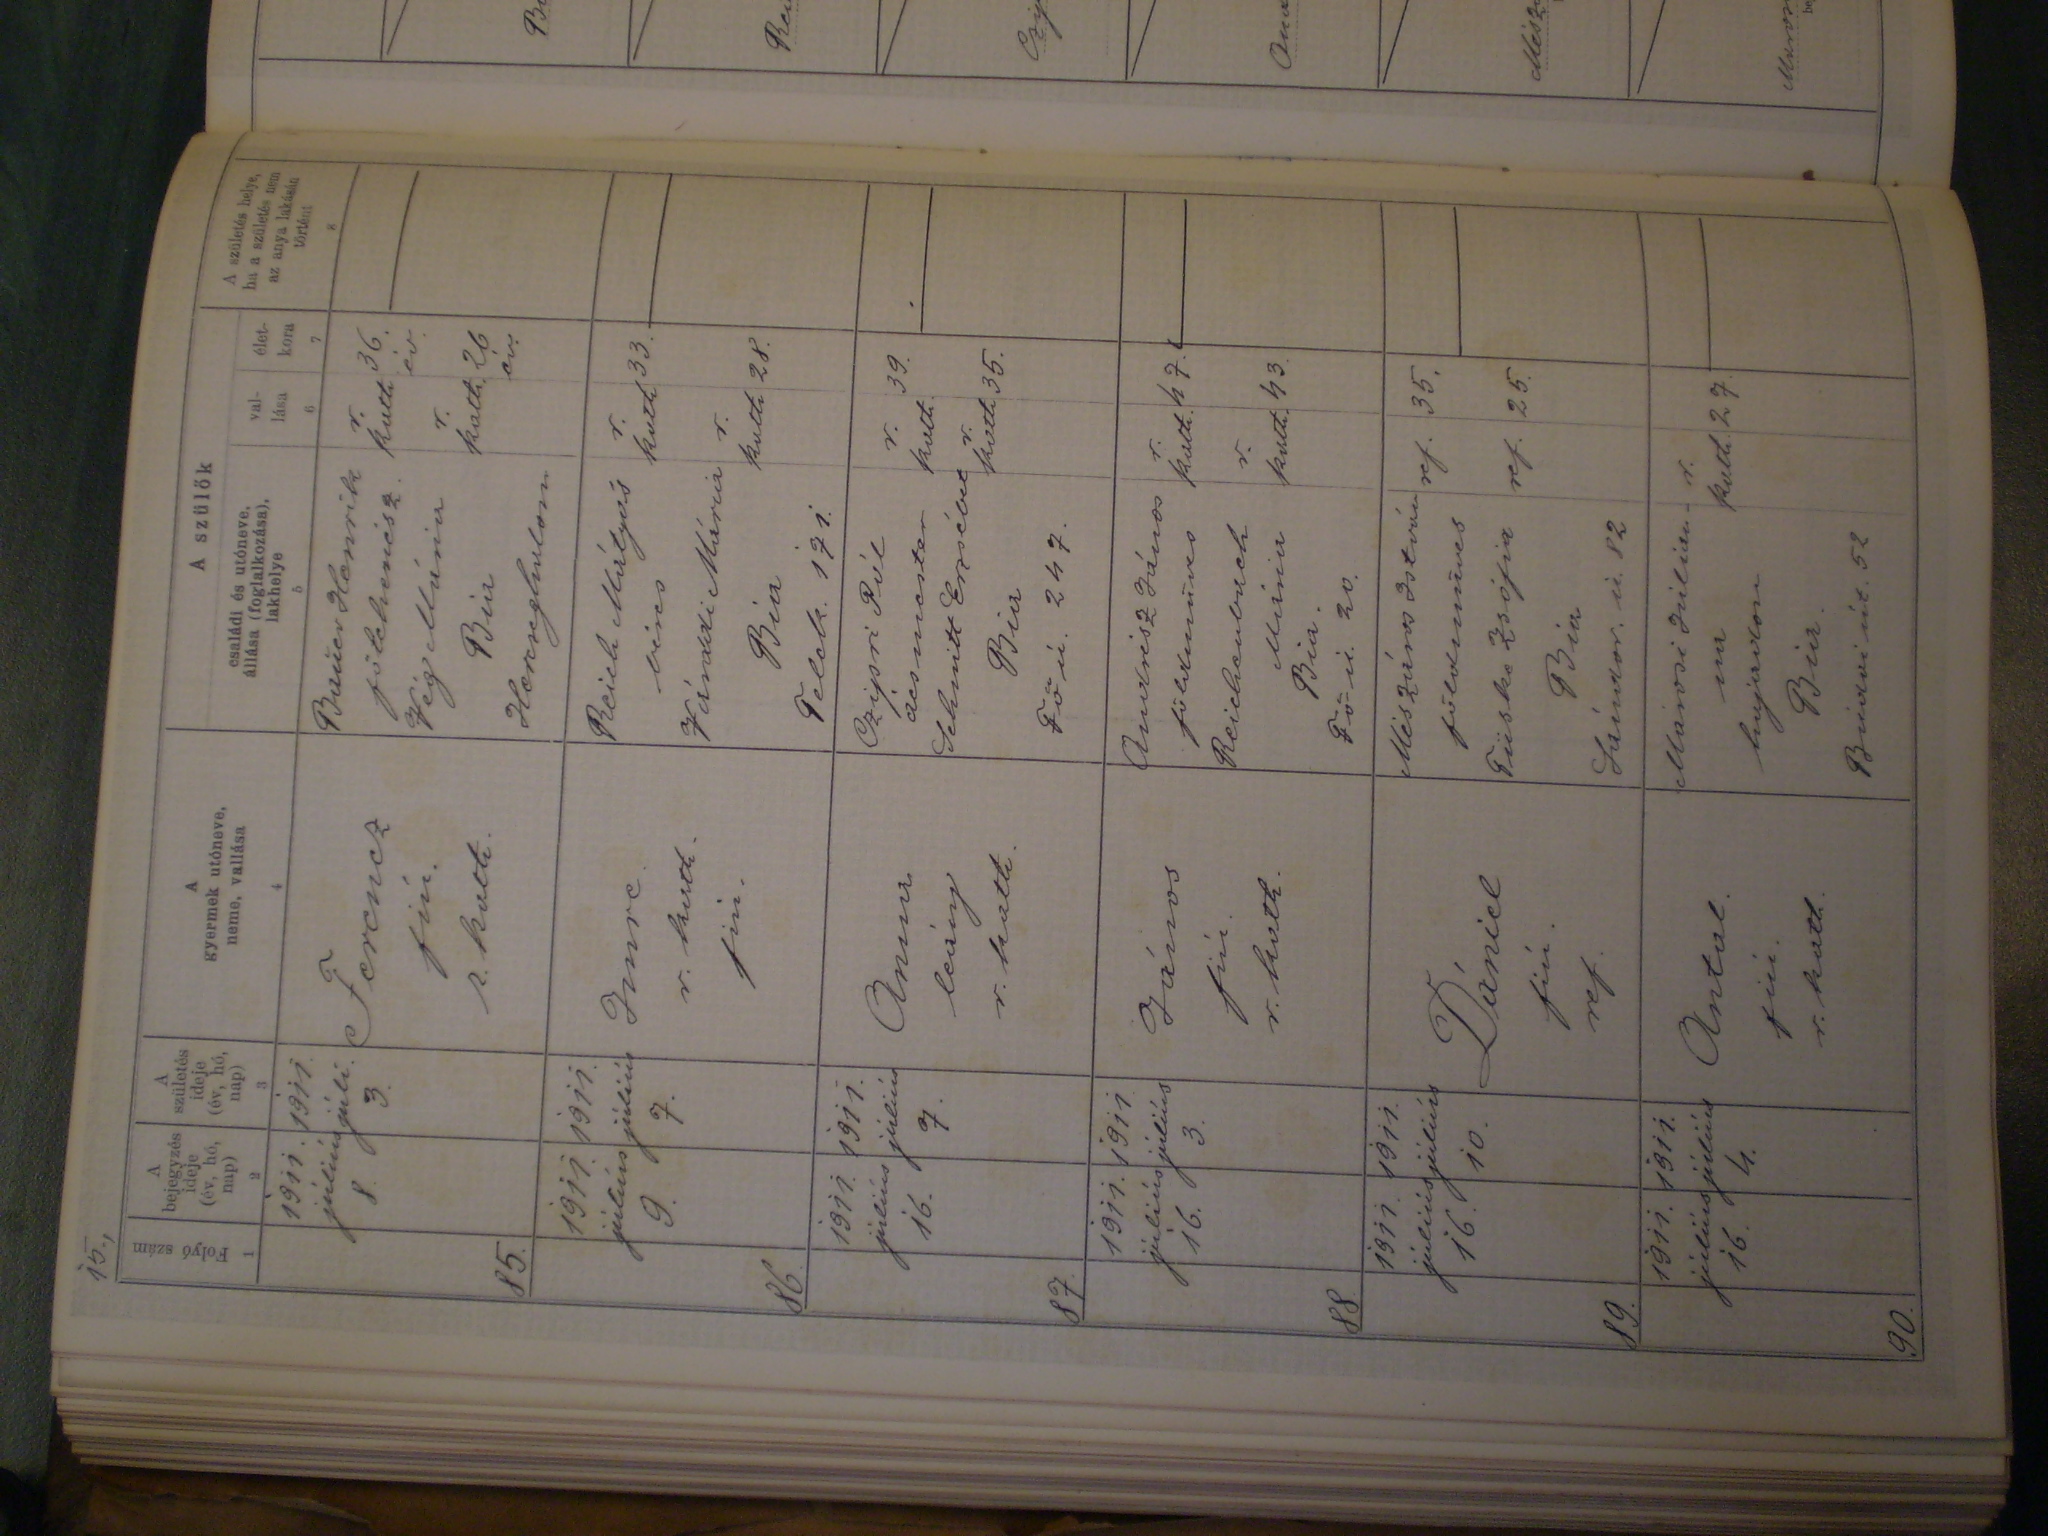 15.,
Folyó szám
A bejegyzés ideje (év, hó, nap)
A születés ideje (óv, hó, nap)
A gyermek utóneve, neme, vallása
A szülők
családi és utóneve, állása (foglalkozása), lakhelye
val-lása
élet-kora
A születés helye, ha a születés nem az anya lakásán történt
1 2 3 4 5 6 7 8
85.
1911. július 8.
1911. júli. 3.
Ferencz
fiú.
r. kath.
Bauer Henrik
r. kath. 36. év.
Vég Mária
r. kath. 26 év.
Bia
86.
1911. július 9.
1911. július 7.
Imre.
r. kath.
fiú.
Reich Mátyás
r. kath 33.
Váraddi Mária
r. kath 28.
Bia
Telek. 171.
87.
1911. július 16.
1911. július 7.
Anna
leány
r. kath.
Czipri Pál
r. kath. 39.
ácsmester
Schmitt Erzsébet
r. kath 35.
Bia
Fő u. 247.
88
1911. július 16.
1911 július 3.
János
fiú.
r. kath.
Andrisz János
r. kath. 47.
földmüves
Reichenbach
Mária
r. kath. 43.
Bia.
Fő u. 20.
89.
1911. július 16.
1911. július 10.
Dániel
fiú.
ref.
Mészáros István
ref. 35.
földmüves
Tüske Zsófia
ref. 25.
Bia
Sándor. u. 82
90.
1911. július 16.
1911. július 4.
Antal.
fiú.
r. kath.
Marosi Juliánna
r. kath. 27.
hajadon
Bia.
Budai út. 52